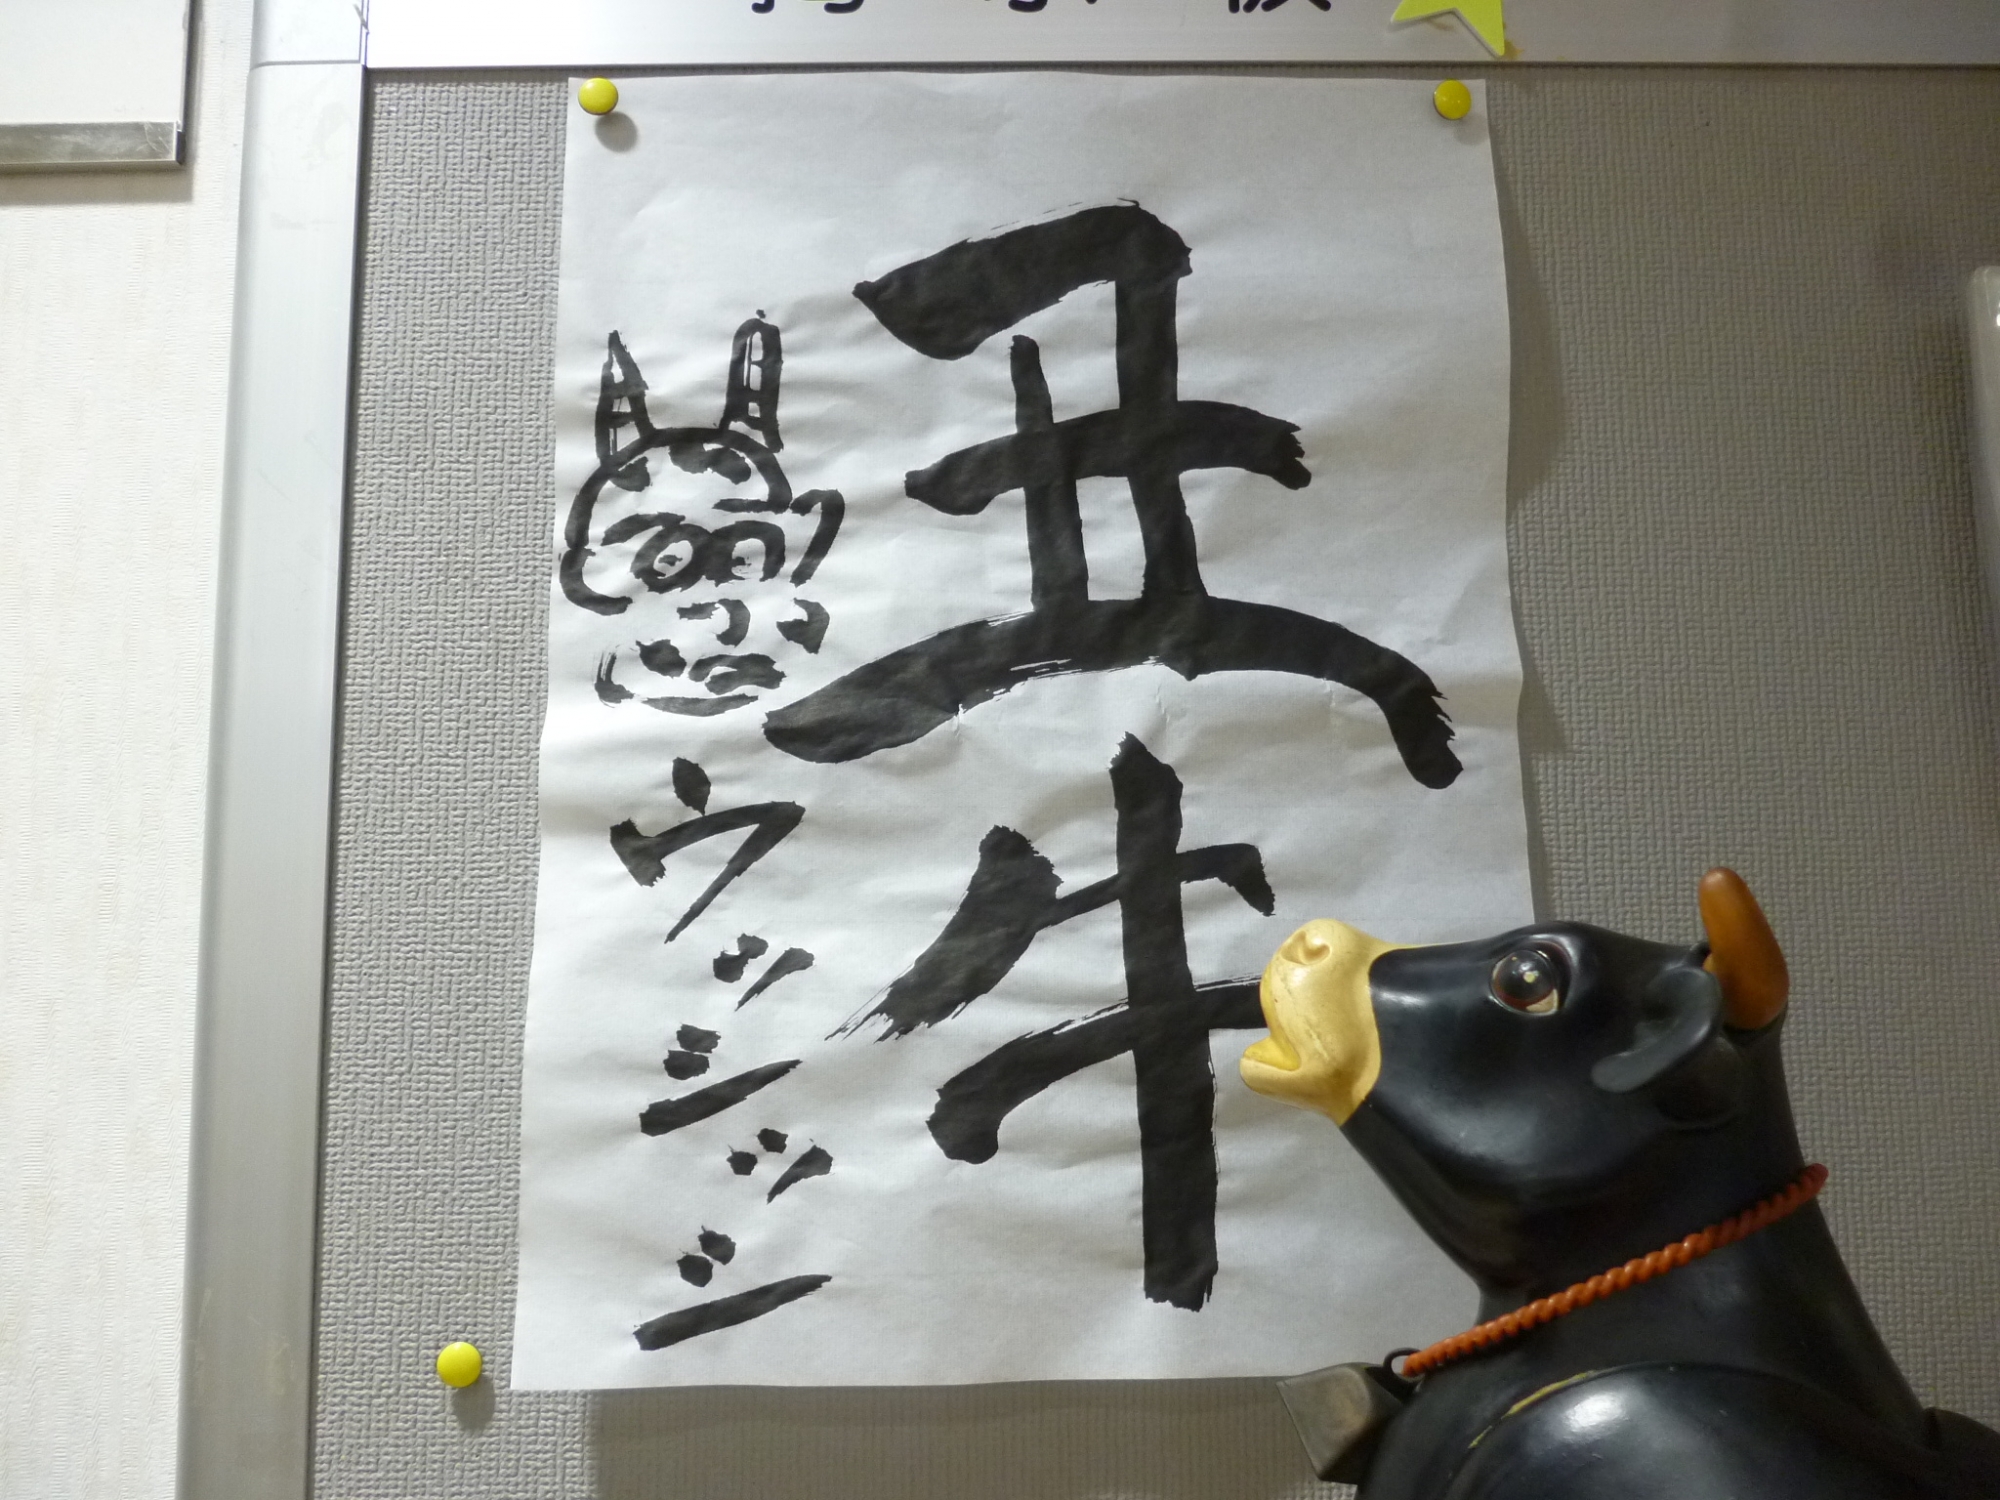 丑牛
ウッシッシ